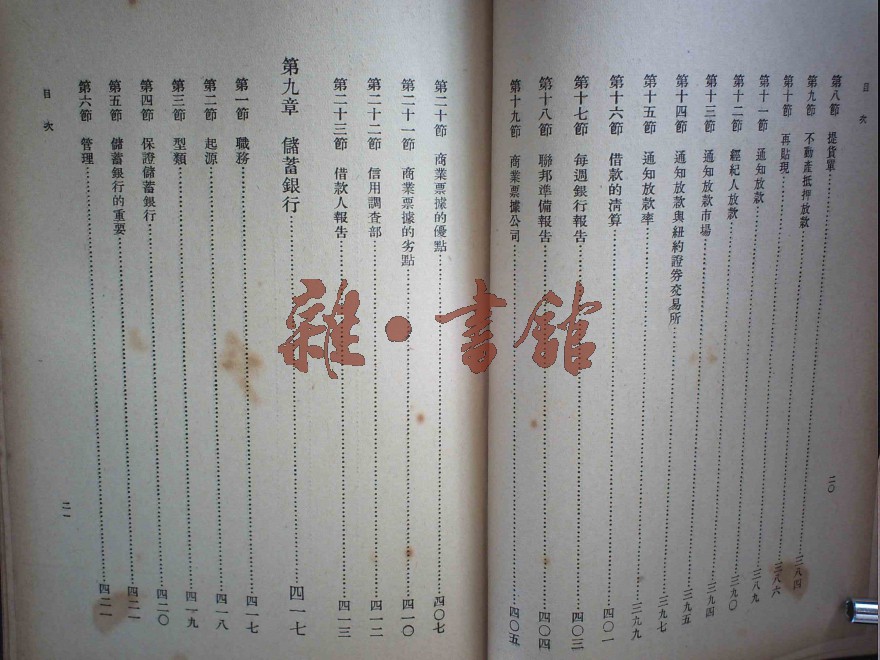 目次
第八節 提貨單
第九節 不動產抵押放款……三八四
第十節 再貼現……三八六
第十一節 通知放款……三八九
第十二節 經紀人放款……三九〇
第十三節 通知放款市場……三九四
第十四節 通知放款與紐約證券交易所……三九五
第十五節 通知放款率……三九七
第十六節 借款的清算……三九九
第十七節 每週銀行報告……四〇一
第十八節 聯邦準備報告……四〇三
第十九節 商業票據公司……四〇四
四〇五
二〇
第二十節 商業票據的優點……四〇七
第二十一節 商業票據的劣點……四一〇
第二十二節 信用調查部……四一二
第二十三節 借款人報告……四一三
第九章 儲蓄銀行……四一七
第一節 職務……四一七
第二節 起源……四一八
第三節 型類……四一九
第四節 保證儲蓄銀行……四二〇
第五節 儲蓄銀行的重要……四二一
第六節 管理……四二一
目次
二一
雜·書館